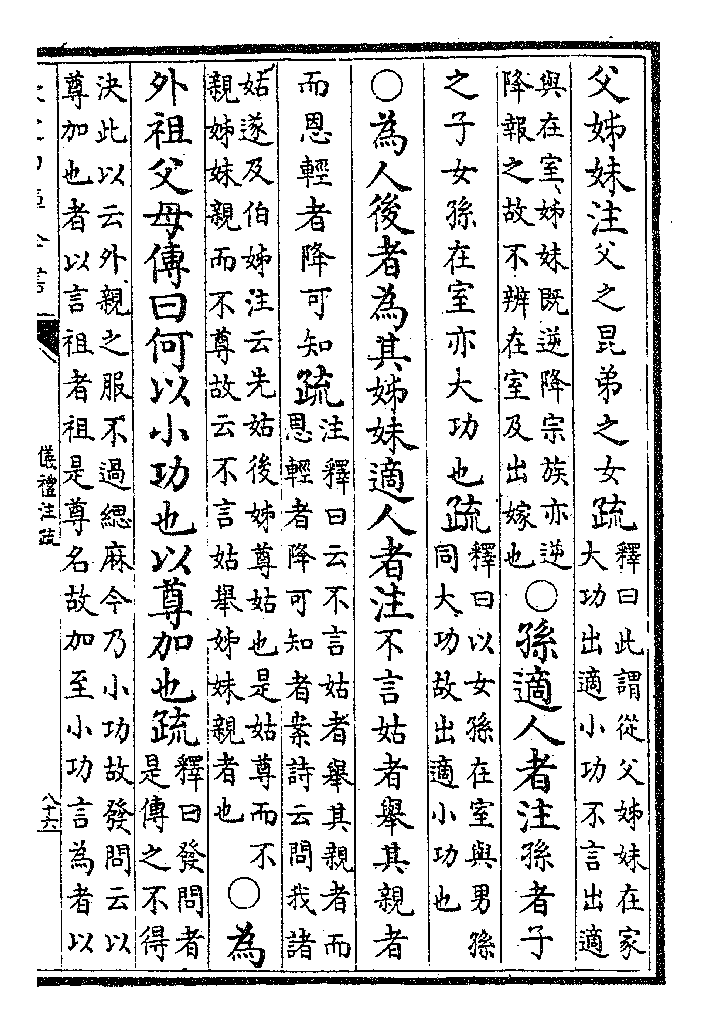 父姊妹注父之昆弟之女疏釋曰此謂從父姊妹在家
大功出適小功不言出適
與在室姊妹既逆降宗族亦逆
降報之故不辨在室及出嫁也○孫適人者注孫者子
之子女孫在室亦大功也疏釋曰以女孫在室與男孫
同大功故出適小功也
○為人後者為其姊妹適人者注不言姑者舉其親者
而恩輕者降可知疏注釋曰云不言姑者舉其親者而
恩輕者降可知者案詩云問我諸
姑遂及伯姊注云先姑後姊尊姑也是姑尊而不
親姊妹親而不尊故云不言姑舉姊妹親者也○為
外祖父母傳曰何以小功也以尊加也疏釋曰發問者
是傳之不得
決此以云外親之服不過緦麻今乃小功故發問云以
尊加也者以言祖者祖是尊名故加至小功言為者以
儀禮注疏
八十六